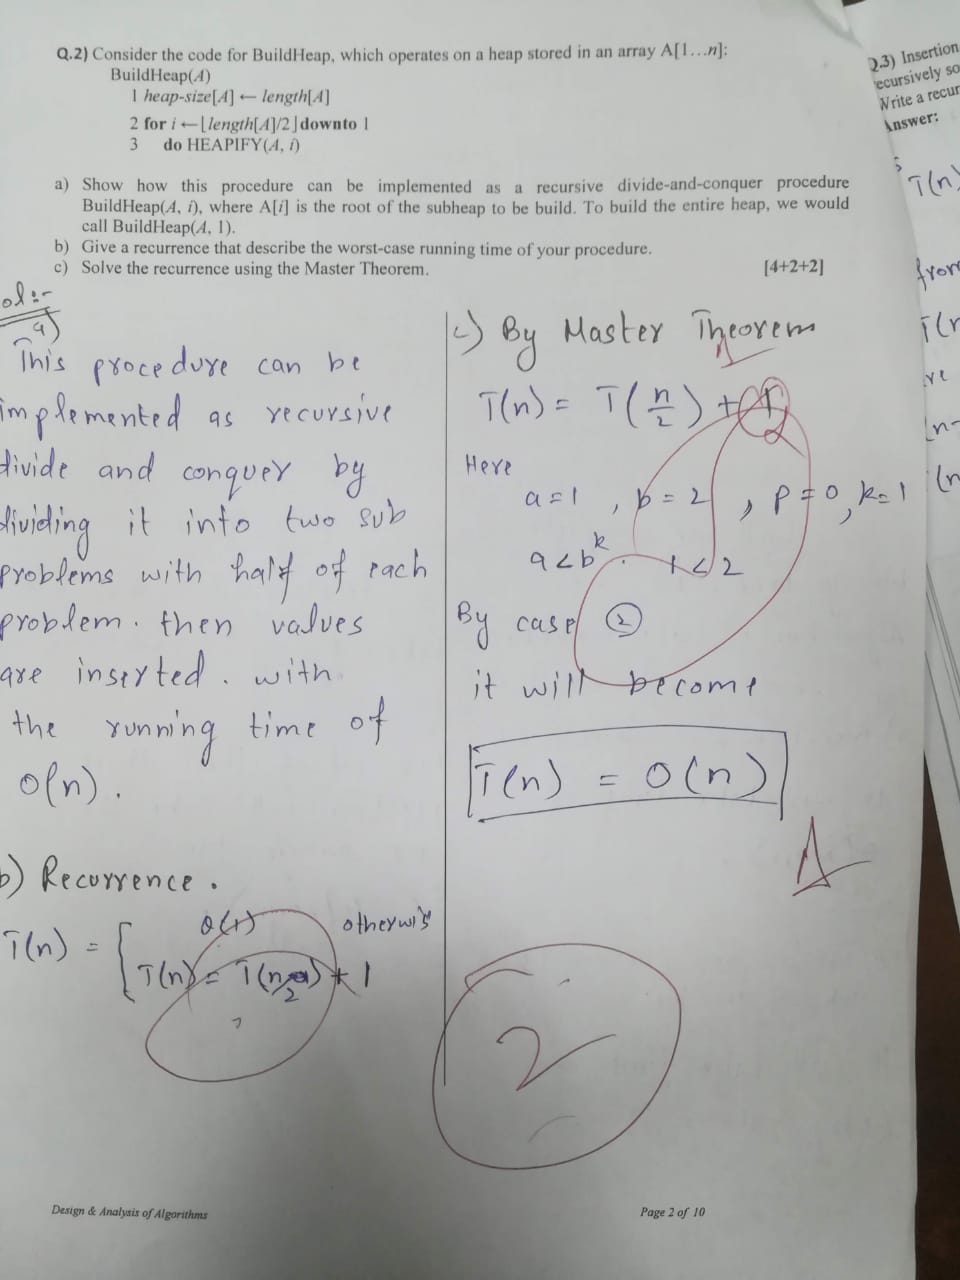 Q.2) Consider the code for BuildHeap, which operates on a heap stored in an array A[1…n]:
BuildHeap(A)
1 heap-size[A] ← length[A]
2 for i ← ⌊length[A]/2⌋ downto 1
3 do HEAPIFY(A, i)
a) Show how this procedure can be implemented as a recursive divide-and-conquer procedure
BuildHeap(A, i), where A[i] is the root of the subheap to be build. To build the entire heap, we would
call BuildHeap(A, 1).
b) Give a recurrence that describe the worst-case running time of your procedure.
c) Solve the recurrence using the Master Theorem.
[4+2+2]
ol:-
a)
This procedure can be
implemented as recursive
divide and conquer by
dividing it into two sub
problems with half of each
problem. then values
are inserted. with
the running time of
O(n).
b) Recurrence.
T(n) = { O(1) otherwis
T(n) = T(n/2) + 1
c) By Master Theorem
T(n) = T(n/2) + 1
Here
a=1, b=2, p=0, k=1
a<b^k. 1<2
By case ②
it will become
T(n) = O(n)
2
Design & Analysis of Algorithms
Page 2 of 10
Q.3) Insertion
recursively so
Write a recur
Answer:
T(n)
from
T(n